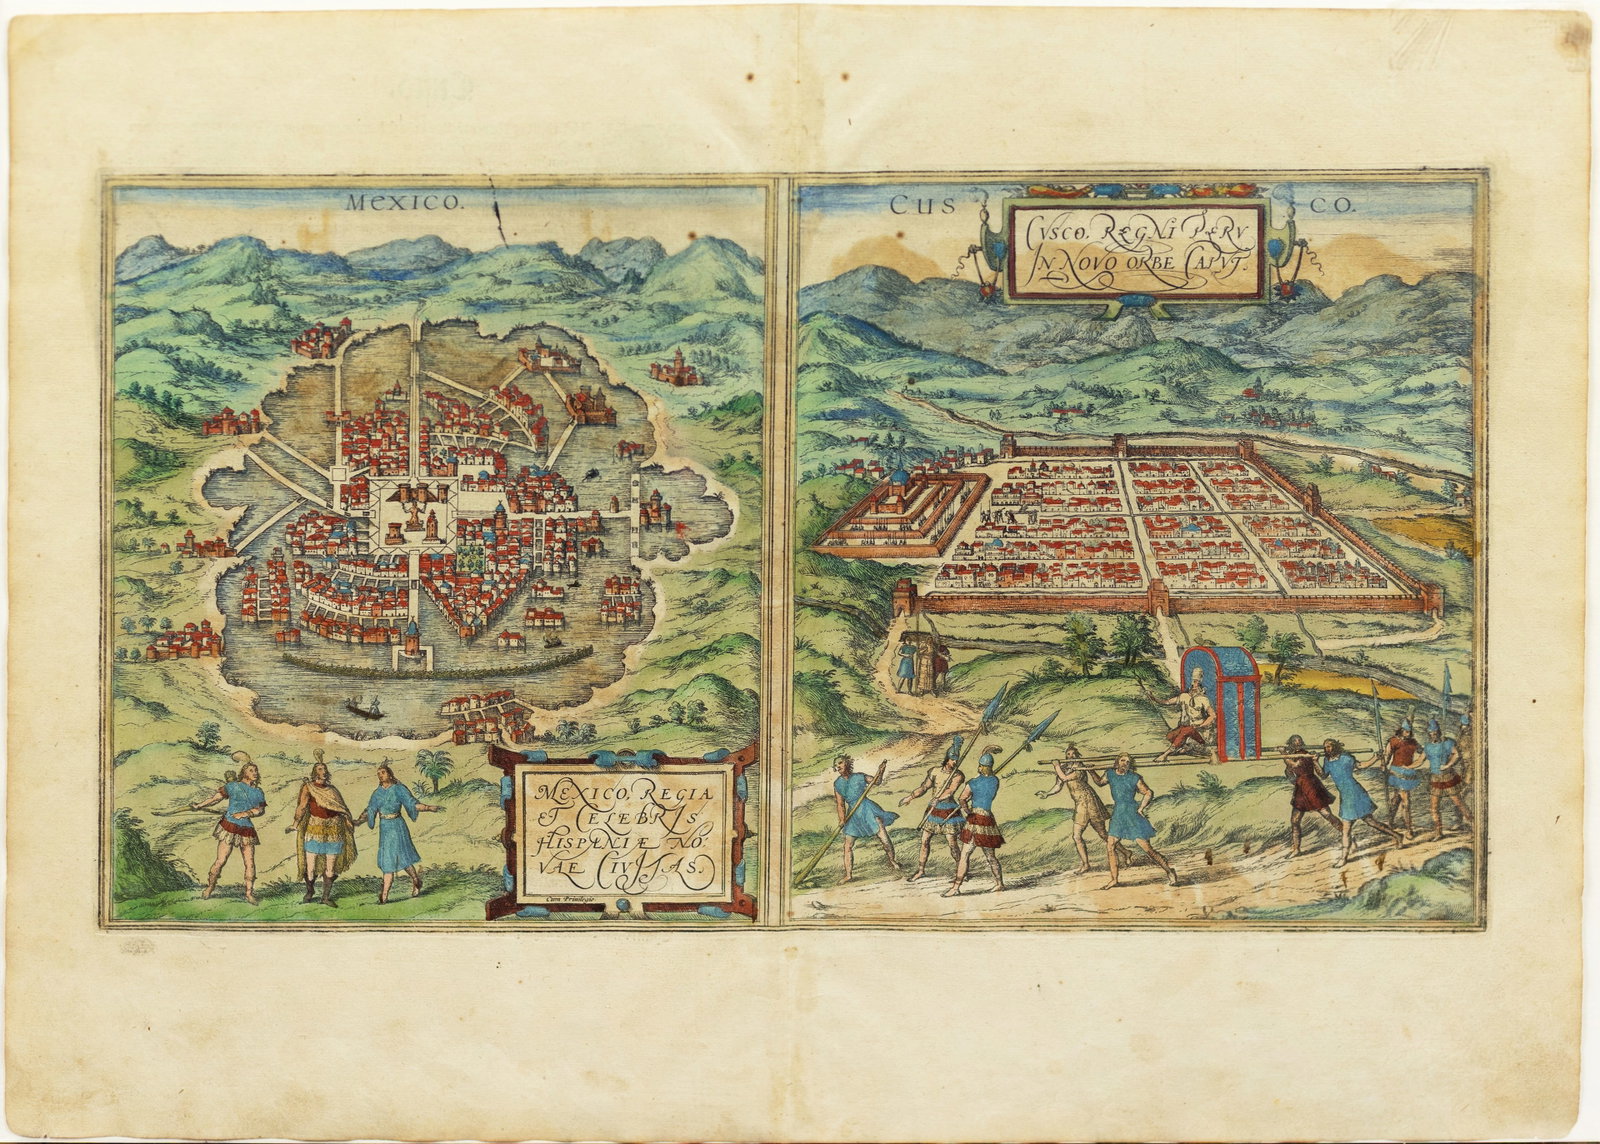 MEXICO.
CUSCO.
CVSCO, REGNI PERV
IN NOVO ORBE CAPVT.
MEXICO, REGIA
ET CELEBRIS
HISPANIÆ NO-
VAE CIVITAS.
Cum Privilegio